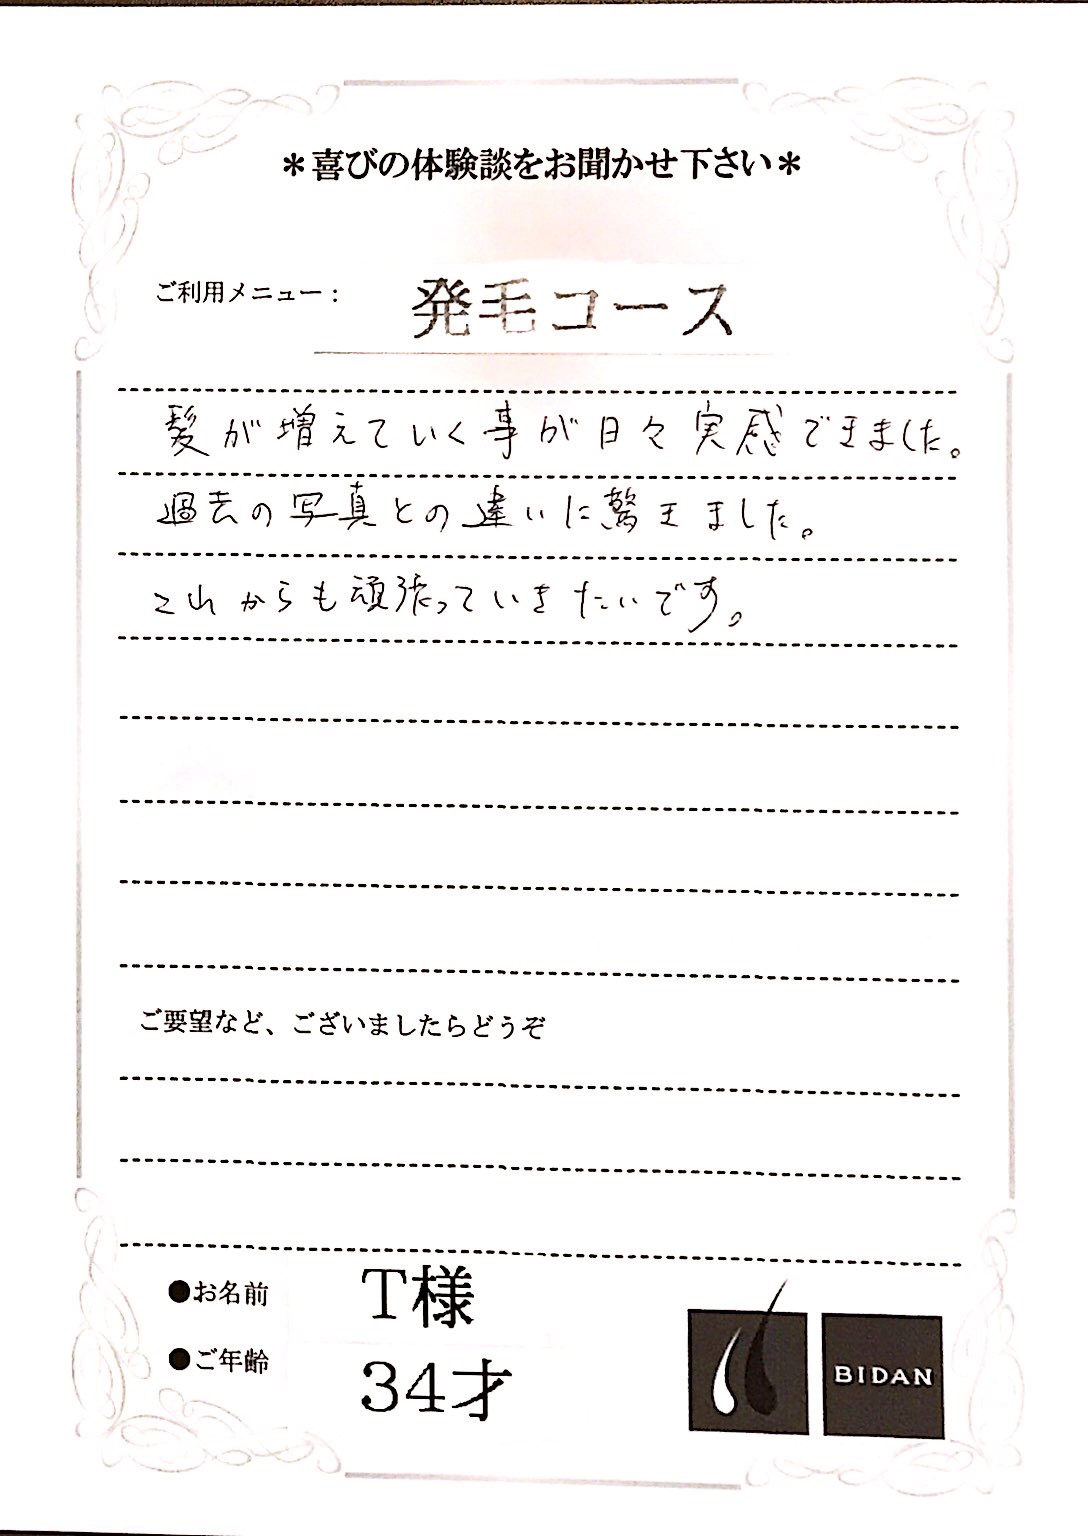 ＊喜びの体験談をお聞かせ下さい＊
ご利用メニュー： 発毛コース
髪が増えていく事が日々実感できました。
過去の写真との違いに驚きました。
これからも頑張っていきたいです。
ご要望など、ございましたらどうぞ
●お名前 T様
●ご年齢 34才
BIDAN